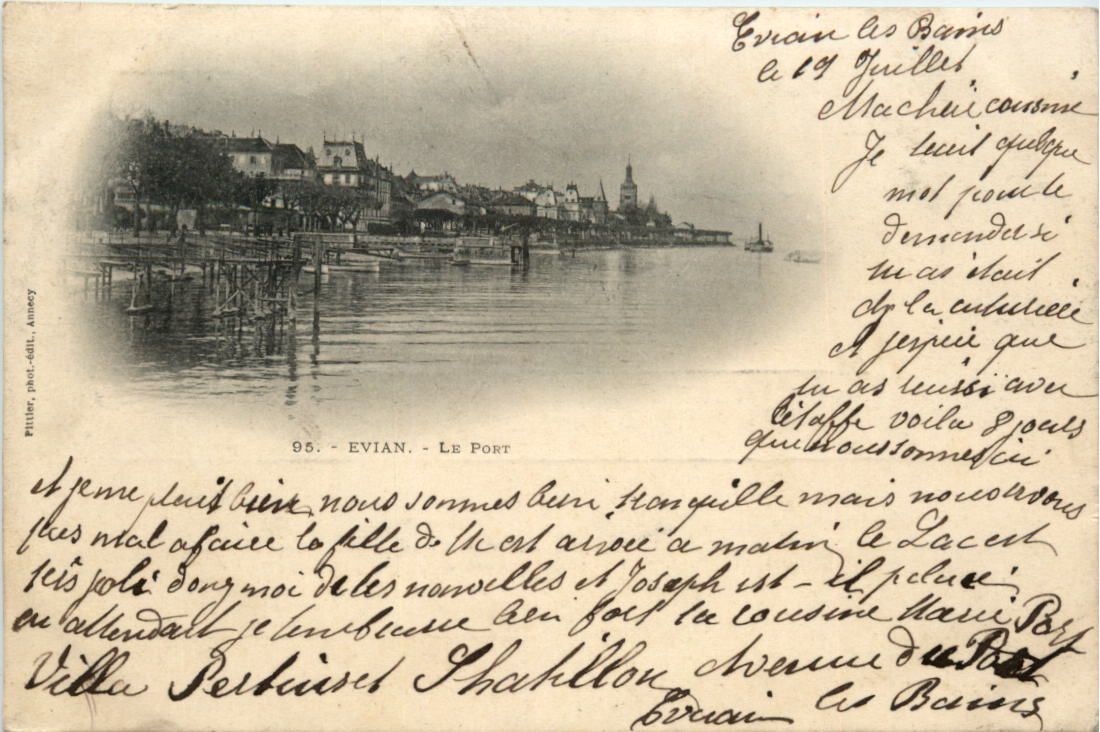 Evian les Bains
le 19 Juillet
Ma cherie cousine
Je t'ecrit quelque
mot pour te
demander si
tu as était
de la
et j'espere que
tu as reussi avec
l'étoffe voila 8 jours
que nous sommes ici
et je me plait bien nous sommes bien tranquille mais nous avons
pas mal a faire la fille de M est arrivé a matin le Lac est
très joli donz moi de les nouvelles et Joseph est-il
en attendant je t'embrasse bien fort ta cousine Marie Port
Villa Chatillon Avenue du Port
Evian les Bains
95. - EVIAN. - LE PORT
Pittier, phot.-édit., Annecy